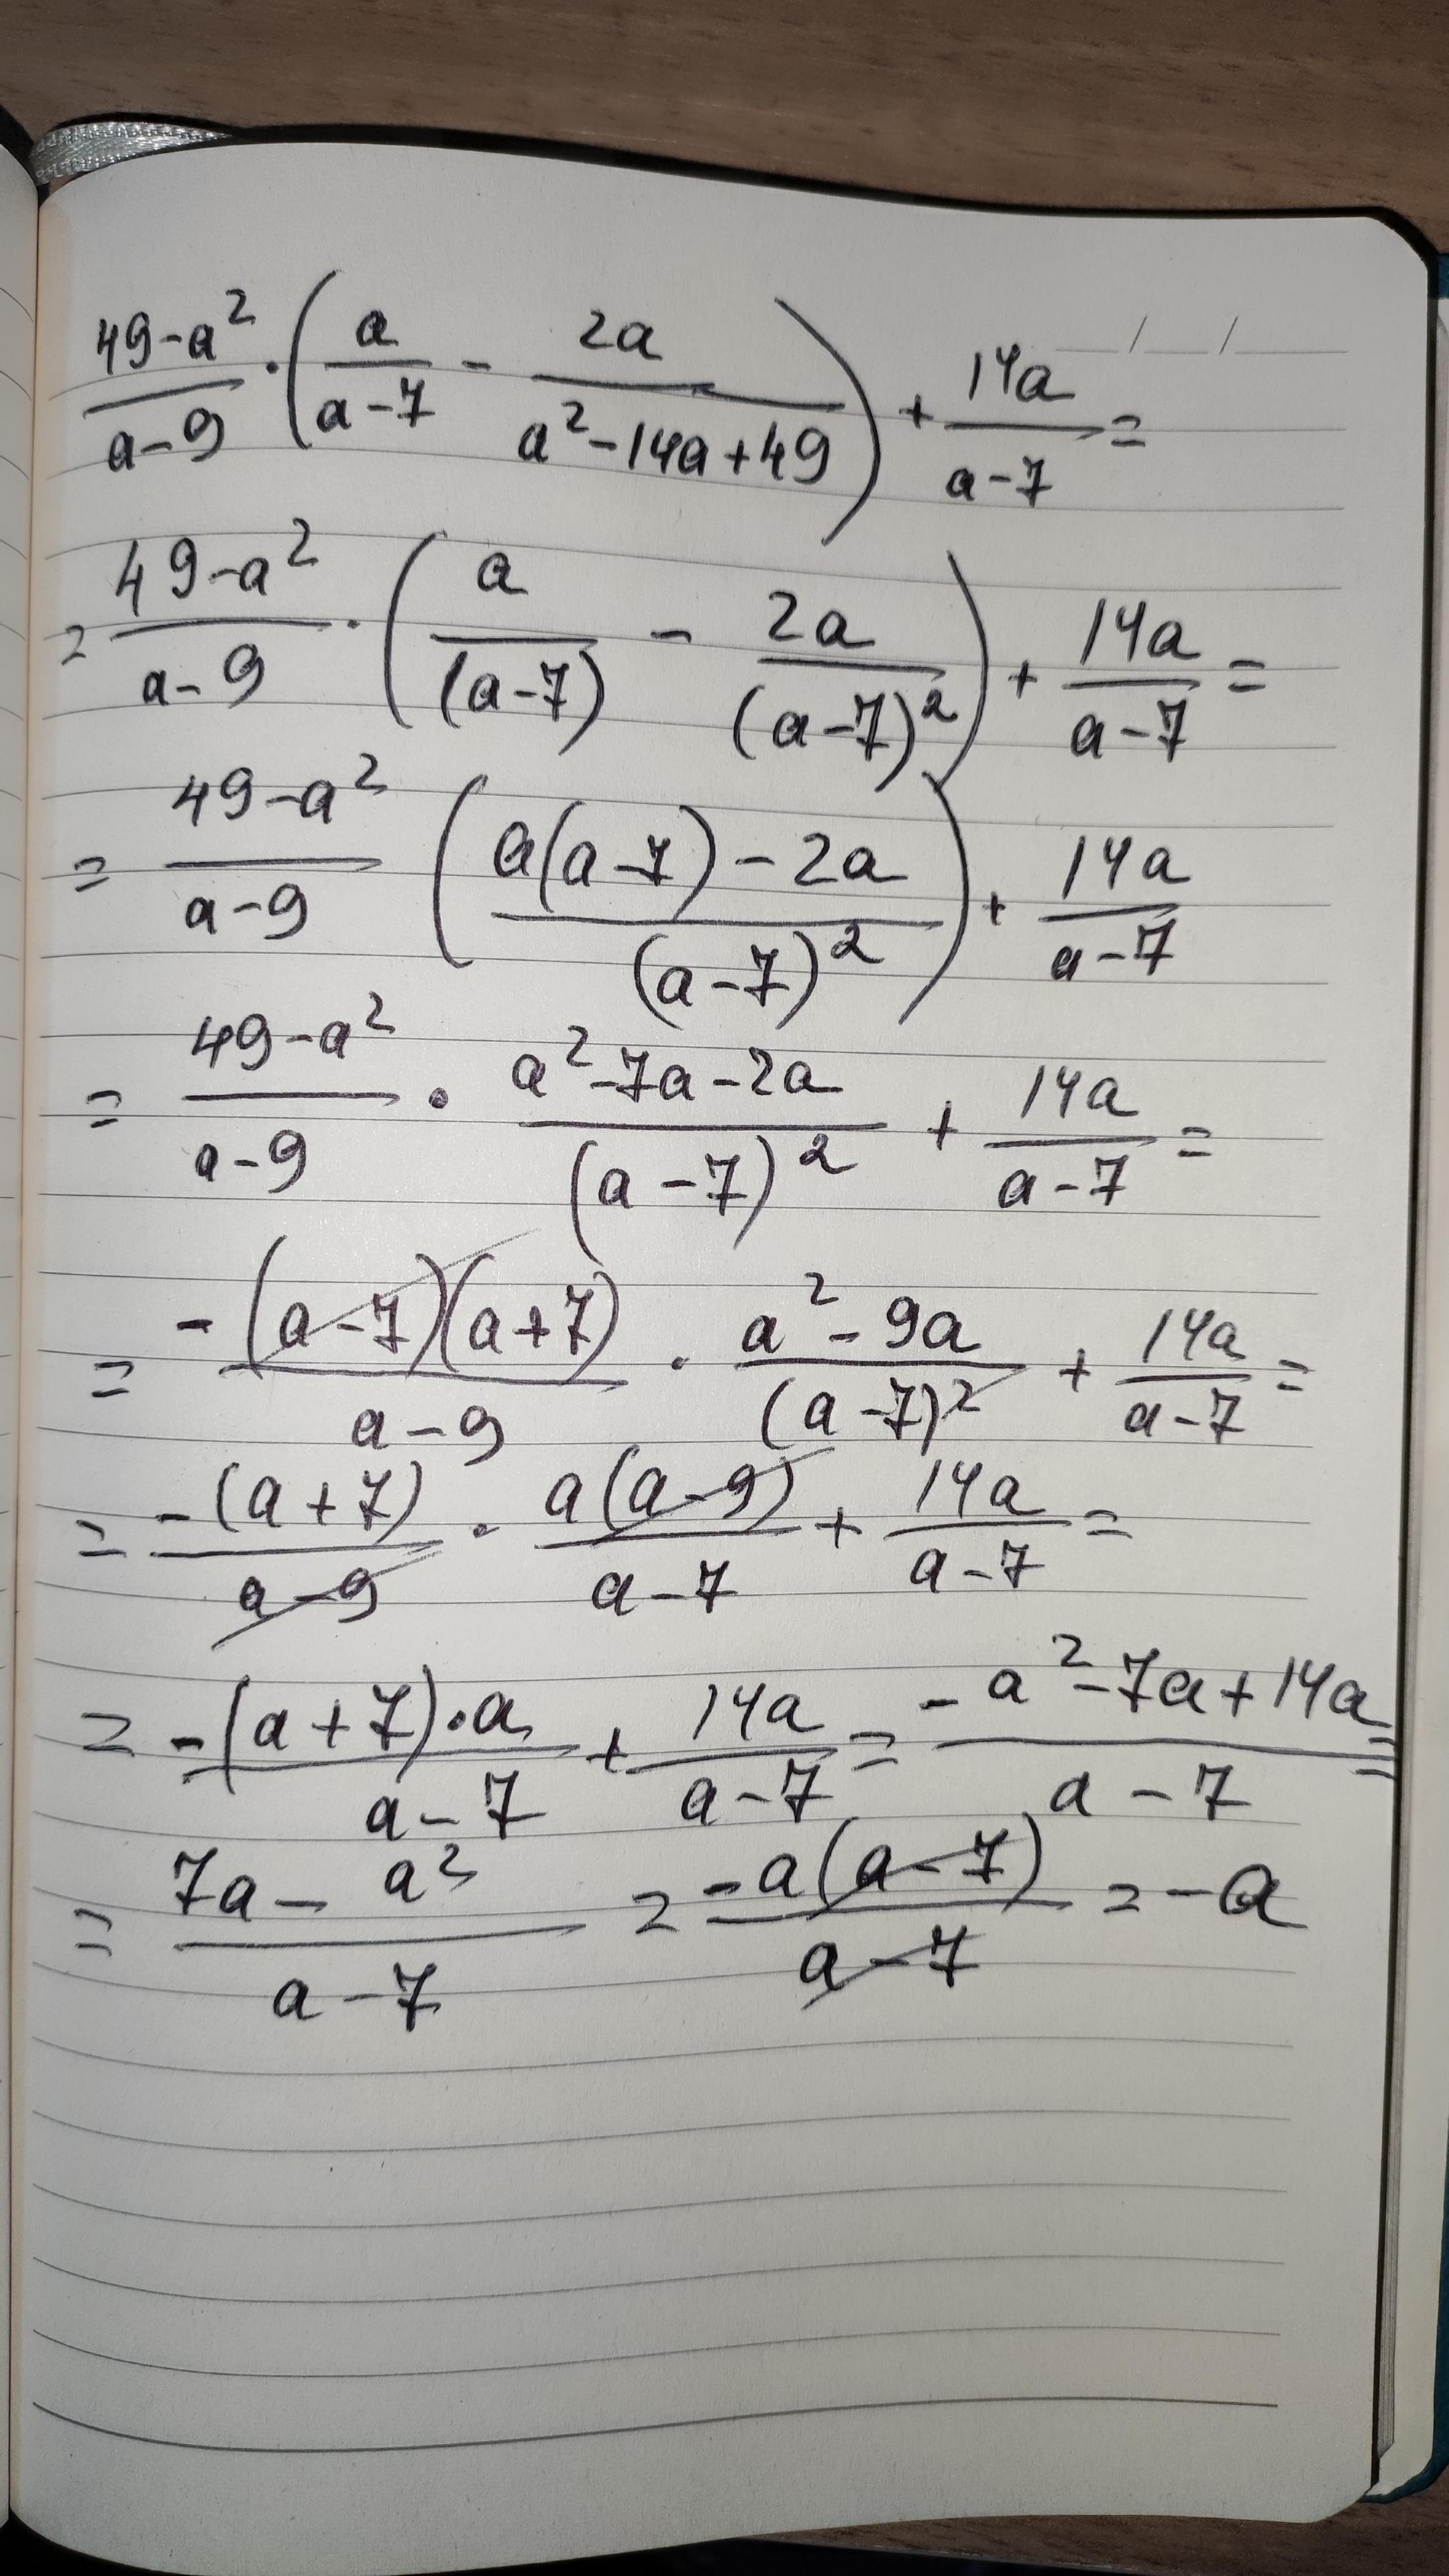 (49-a²)/(a-9) · (a/(a-7) - 2a/(a²-14a+49)) + 14a/(a-7) =
= (49-a²)/(a-9) · (a/(a-7) - 2a/(a-7)²) + 14a/(a-7) =
= (49-a²)/(a-9) ((a(a-7)-2a)/(a-7)²) + 14a/(a-7)
= (49-a²)/(a-9) · (a²-7a-2a)/(a-7)² + 14a/(a-7) =
= -(a-7)(a+7)/(a-9) · (a²-9a)/(a-7)² + 14a/(a-7) =
= -(a+7)/(a-9) · a(a-9)/(a-7) + 14a/(a-7) =
= -(a+7)·a/(a-7) + 14a/(a-7) = (-a²-7a+14a)/(a-7) =
= (7a-a²)/(a-7) = -a(a-7)/(a-7) = -a